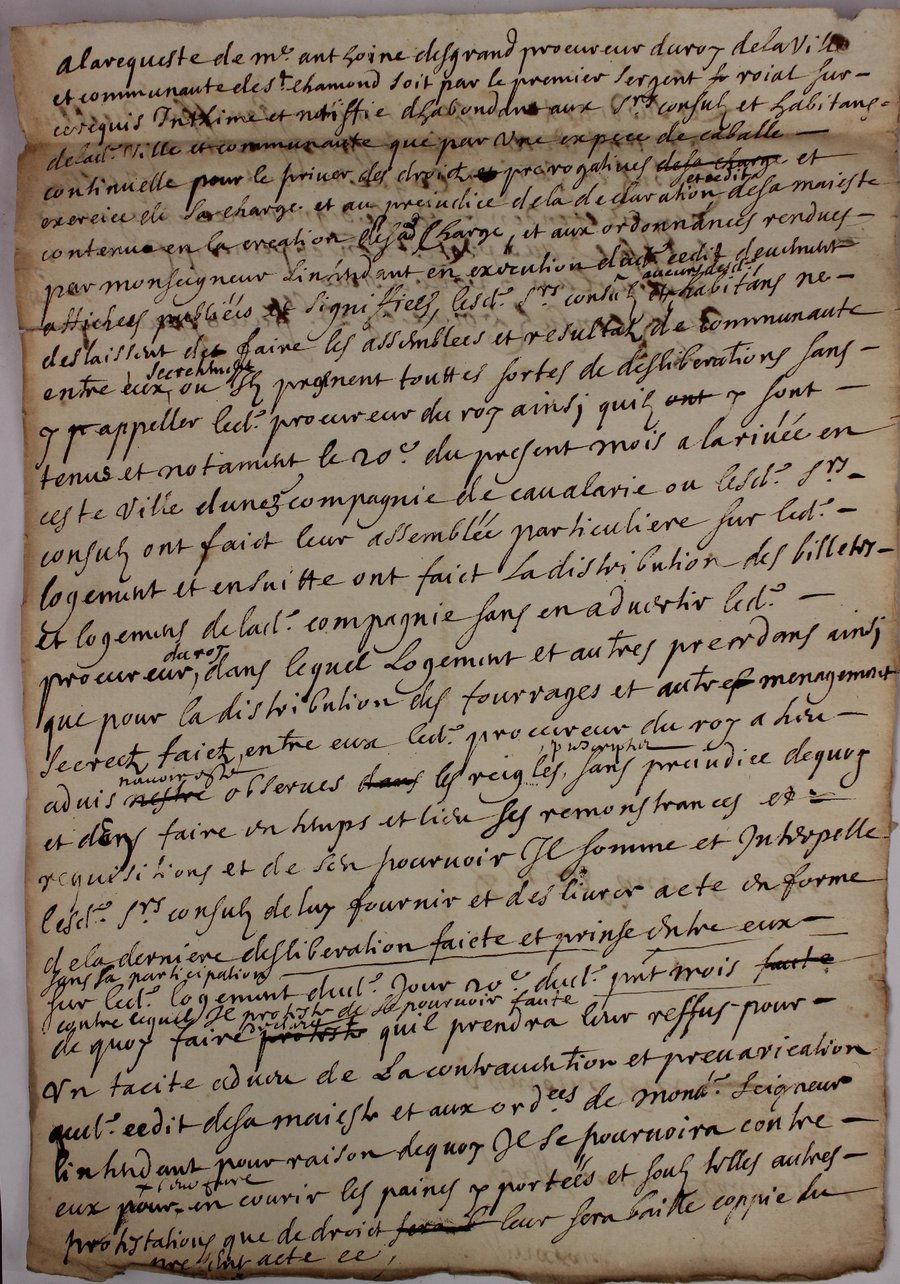 a la requeste de me anthoine desgrand procureur du roy de la Ville
et communaute de st chamond soit par le premier sergent roial sur
ce requis Inthime et notiffie dhabondant aux srs consulz et habitans
de lad. Ville et communaute que par une expece de caballe
continuelle pour le priver des droictz et prerogatives de sa charge et
exercice de sa charge et au prejudice de la declaration et eedit de sa maieste
contenue en la creation desd charge, et aux ordonnances rendues
par monseigneur Lintendant en execution dud. eedit deuement
affichees publiées et signiffiees, lesd. srs consulz et aucuns desd. habitans ne
deslaissent de faire les assemblees et resultatz de communaute
entre eux, secretement ou Ilz prennent touttes sortes de desliberations sans
y appeller led. procureur du roy ainsi quilz ont y sont
tenus et notament le 20e du present mois a la rivée en
ceste Ville dune compagnie de cavalarie ou lesd. srs
consulz ont faict leur assemblée particuliere sur led.
logement et ensuitte ont faict La distribution des billetz
et logemens de lad. compagnie sans en advertir led.
procureur, du roy dans lequel Logement et autres precedans ainsi
que pour la distribution des fourrages et autres menagement
secretz faictz entre eux led. procureur du roy a heu
advis navoir esté observes dans les reigles, prescriptes sans prejudice de quoy
et den faire en temps et lieu ses remonstrances et
requisitions et de sen pourvoir Il somme et Interpelle
lesd. srs consulz de luy fournir et deslivrer acte en forme
de la derniere desliberation faicte et prinse entre eux
sans sa participation
sur led. logement dud. Jour 20e dud. pnt mois faute
contre lequel Il proteste de se pourvoir faute
de quoy faire declare proteste quil prendra leur reffus pour
Un tacite adveu de La contravention et prevarication
aud. eedit de sa maieste et aux ordces de mond. seigneur
lintendant pour raison de quoy Il se pourvoira contre
eux pour leur faire encourir les paines y portées et soulz telles autres
protestations que de droict sera leur sera baille coppie du
present acte ce,